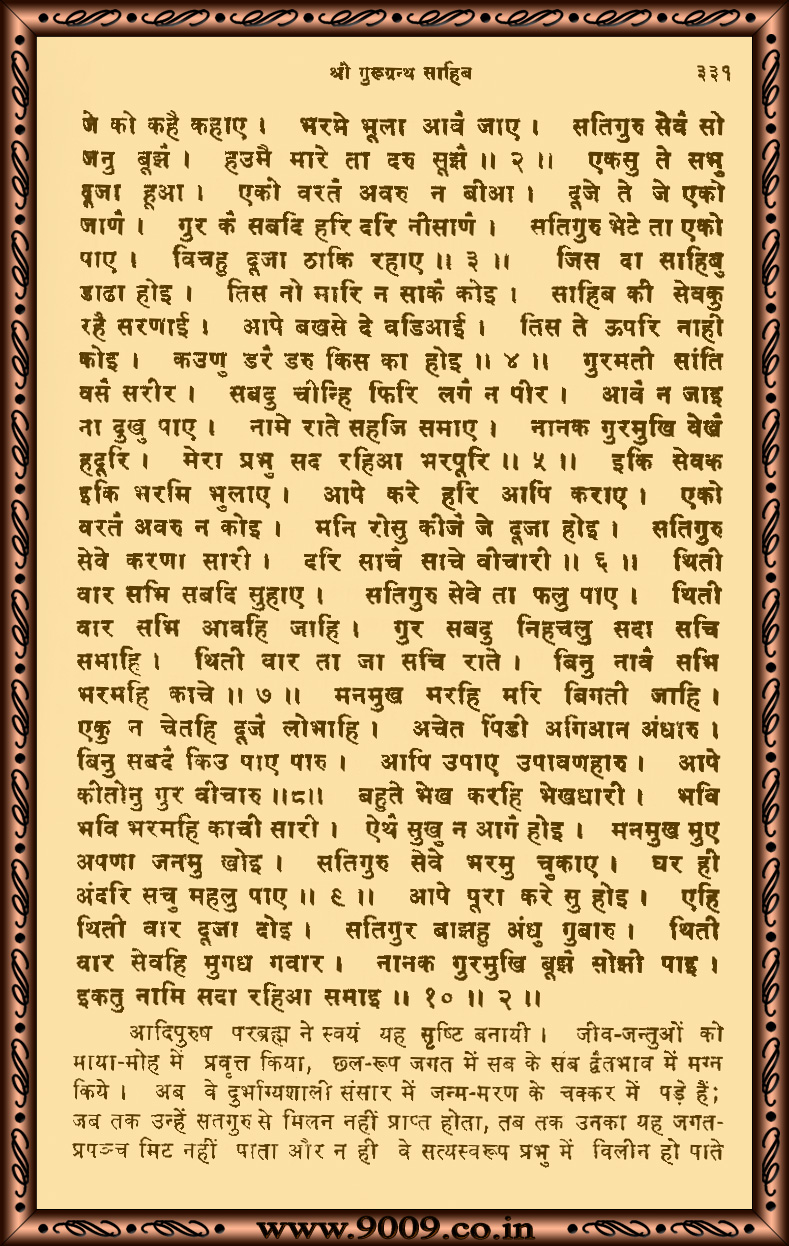 श्री गुरूग्रन्थ साहिब ३३१
जे को कहै कहाए । भरमे भूला आवै जाए । सतिगुरु सेवै सो
जनु बूझै । हउमै मारे ता दरु सूझै ॥ २ ॥ एकसु ते सभु
दूजा हूआ । एको वरतै अवरु न बीआ । दूजे ते जे एको
जाणै । गुर कै सबदि हरि दरि नीसाणै । सतिगुरु भेटे ता एको
पाए । विचहु दूजा ठाकि रहाए ॥ ३ ॥ जिस दा साहिबु
डाढा होइ । तिस नो मारि न साकै कोइ । साहिब की सेवकु
रहै सरणाई । आपे बखसे दे वडिआई । तिस ते ऊपरि नाही
कोइ । कउणु डरै डरु किस का होइ ॥ ४ ॥ गुरमती सांति
वसै सरीर । सबदु चीन्हि फिरि लगै न पीर । आवै न जाइ
ना दुखु पाए । नामे राते सहजि समाए । नानक गुरमुखि वेखै
हदूरि । मेरा प्रभु सद रहिआ भरपूरि ॥ ५ ॥ इकि सेवक
इकि भरमि भुलाए । आपे करे हरि आपि कराए । एको
वरतै अवरु न कोइ । मनि रोसु कीजै जे दूजा होइ । सतिगुरु
सेवे करणा सारी । दरि साचै साचे वीचारी ॥ ६ ॥ थिती
वार सभि सबदि सुहाए । सतिगुरु सेवे ता फलु पाए । थिती
वार सभि आवहि जाहि । गुर सबदु निहचलु सदा सचि
समाहि । थिती वार ता जा सचि राते । बिनु नावै सभि
भरमहि काचे ॥ ७ ॥ मनमुख मरहि मरि बिगती जाहि ।
एकु न चेतहि दूजै लोभाहि । अचेत पिंडी अगिआन अंधारु ।
बिनु सबदै किउ पाए पारु । आपि उपाए उपावणहारु । आपे
कीतोनु गुर वीचारु ॥८॥ बहुते भेख करहि भेखधारी । भवि
भवि भरमहि काची सारी । ऐथै सुखु न आगै होइ । मनमुख मुए
अपणा जनमु खोइ । सतिगुरु सेवे भरमु चुकाए । घर ही
अंदरि सचु महलु पाए ॥ ६ ॥ आपे पूरा करे सु होइ । एहि
थिती वार दूजा दोइ । सतिगुर बाझहु अंधु गुबारु । थिती
वार सेवहि मुगध गवार । नानक गुरमुखि बूझै सोझी पाइ ।
इकतु नामि सदा रहिआ समाइ ॥ १० ॥ २ ॥
आदिपुरुष परब्रह्म ने स्वयं यह सृष्टि बनायी । जीव-जन्तुओं को
माया-मोह में प्रवृत्त किया, छल-रूप जगत में सब के सब द्वैतभाव में मग्न
किये । अब वे दुर्भाग्यशाली संसार में जन्म-मरण के चक्कर में पड़े हैं;
जब तक उन्हें सतगुरु से मिलन नहीं प्राप्त होता, तब तक उनका यह जगत-
प्रपञ्च मिट नहीं पाता और न ही वे सत्यस्वरूप प्रभु में विलीन हो पाते
www.9009.co.in